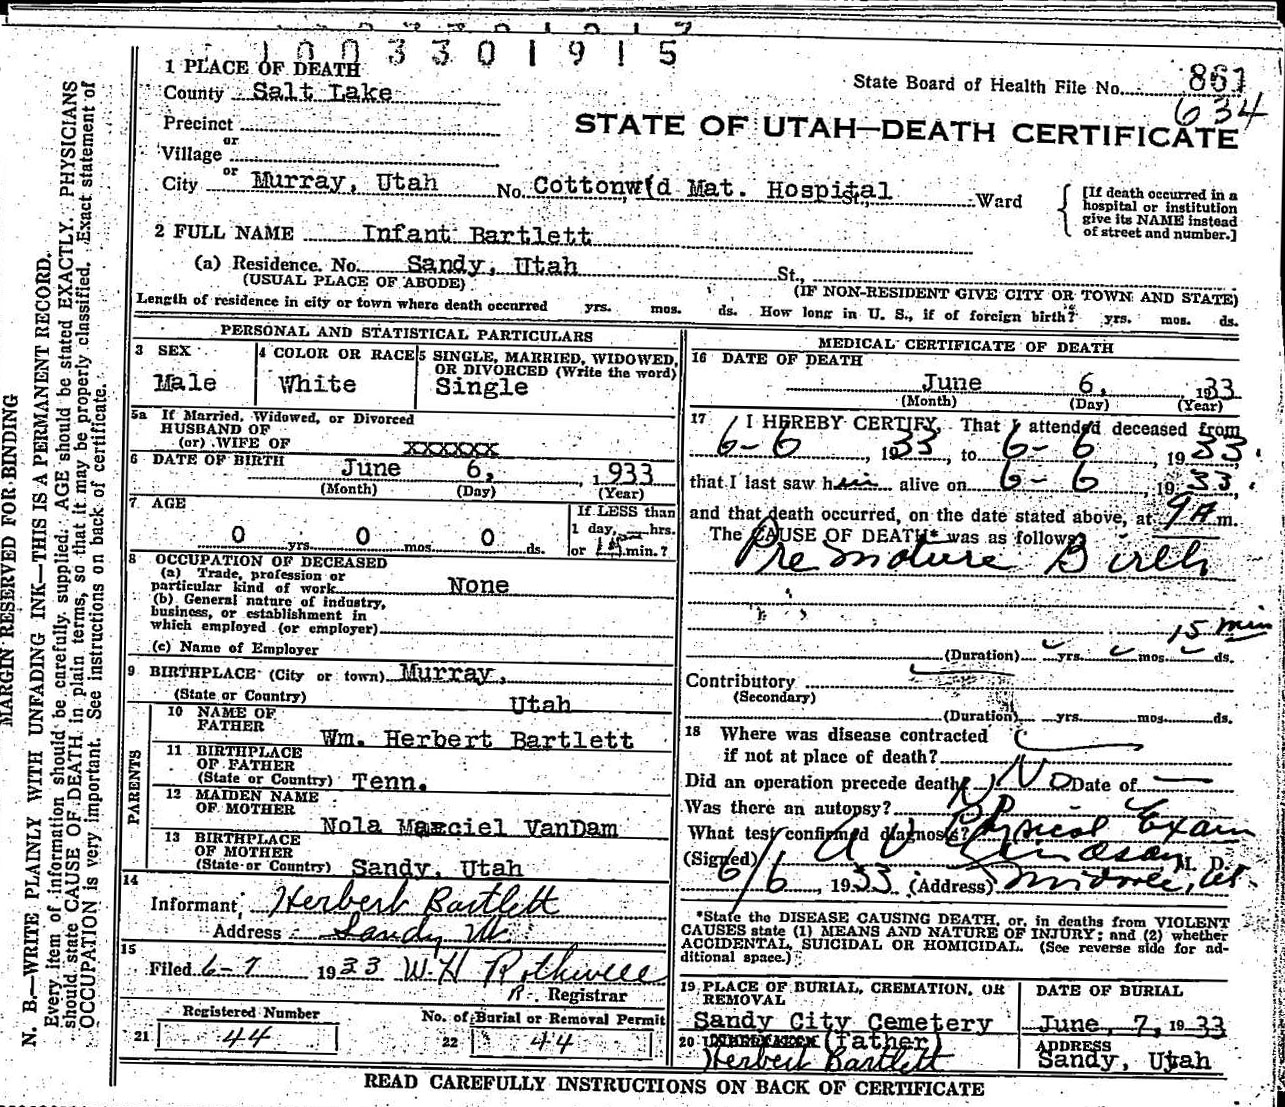 1003301915
1 PLACE OF DEATH
State Board of Health File No. 861
634
County Salt Lake
Precinct
STATE OF UTAH—DEATH CERTIFICATE
or
Village
or
City Murray, Utah No. Cottonw(d Mat. Hospital St., Ward
[If death occurred in a
hospital or institution
give its NAME instead
of street and number.]
2 FULL NAME Infant Bartlett
(a) Residence. No. Sandy, Utah St.,
(USUAL PLACE OF ABODE) (IF NON-RESIDENT GIVE CITY OR TOWN AND STATE)
Length of residence in city or town where death occurred yrs. mos. ds. How long in U. S., if of foreign birth? yrs. mos. ds.
PERSONAL AND STATISTICAL PARTICULARS
3 SEX
Male
4 COLOR OR RACE
White
5 SINGLE, MARRIED, WIDOWED,
OR DIVORCED (Write the word)
Single
5a If Married, Widowed, or Divorced
HUSBAND OF
(or) WIFE OF xxxxxx
6 DATE OF BIRTH June 6, 1933
(Month) (Day) (Year)
7 AGE
If LESS than
1 day, hrs.
or min.?
0 yrs. 0 mos. 0 ds.
8 OCCUPATION OF DECEASED
(a) Trade, profession or
particular kind of work None
(b) General nature of industry,
business, or establishment in
which employed (or employer)
(c) Name of Employer
9 BIRTHPLACE (City or town) Murray,
(State or Country) Utah
PARENTS
10 NAME OF
FATHER Wm. Herbert Bartlett
11 BIRTHPLACE
OF FATHER
(State or Country) Tenn.
12 MAIDEN NAME
OF MOTHER Nola Marciel VanDam
13 BIRTHPLACE
OF MOTHER
(State or Country) Sandy, Utah
14
Informant Herbert Bartlett
Address Sandy Ut.
15
Filed 6-7 1933 W. H. Rothwell
R. Registrar
Registered Number
21 44
No. of Burial or Removal Permit
22 44
MEDICAL CERTIFICATE OF DEATH
16 DATE OF DEATH
June 6, 1933
(Month) (Day) (Year)
17 I HEREBY CERTIFY, That I attended deceased from
6-6, 1933, to 6-6, 1933.
that I last saw him alive on 6-6, 1933,
and that death occurred, on the date stated above, at 9 A m.
The CAUSE OF DEATH* was as follows:
Premature Birth
15 min
(Duration) yrs. mos. ds.
Contributory
(Secondary)
(Duration) yrs. mos. ds.
18 Where was disease contracted
if not at place of death?
Did an operation precede death? No Date of —
Was there an autopsy?
What test confirmed diagnosis? Physical Exam
(Signed) Lindsay M. D.
6/6, 1933 (Address) Midvale, Ut
*State the DISEASE CAUSING DEATH, or, in deaths from VIOLENT
CAUSES state (1) MEANS AND NATURE OF INJURY; and (2) whether
ACCIDENTAL, SUICIDAL OR HOMICIDAL. (See reverse side for ad-
ditional space.)
19 PLACE OF BURIAL, CREMATION, OR
REMOVAL
Sandy City Cemetery
DATE OF BURIAL
June, 7, 1933
20 UNDERTAKER (father)
Herbert Bartlett
ADDRESS
Sandy, Utah
READ CAREFULLY INSTRUCTIONS ON BACK OF CERTIFICATE
MARGIN RESERVED FOR BINDING
N. B.—WRITE PLAINLY WITH UNFADING INK—THIS IS A PERMANENT RECORD.
Every item of information should be carefully supplied. AGE should be stated EXACTLY. PHYSICIANS
should state CAUSE OF DEATH in plain terms, so that it may be properly classified. Exact statement of
OCCUPATION is very important. See instructions on back of certificate.